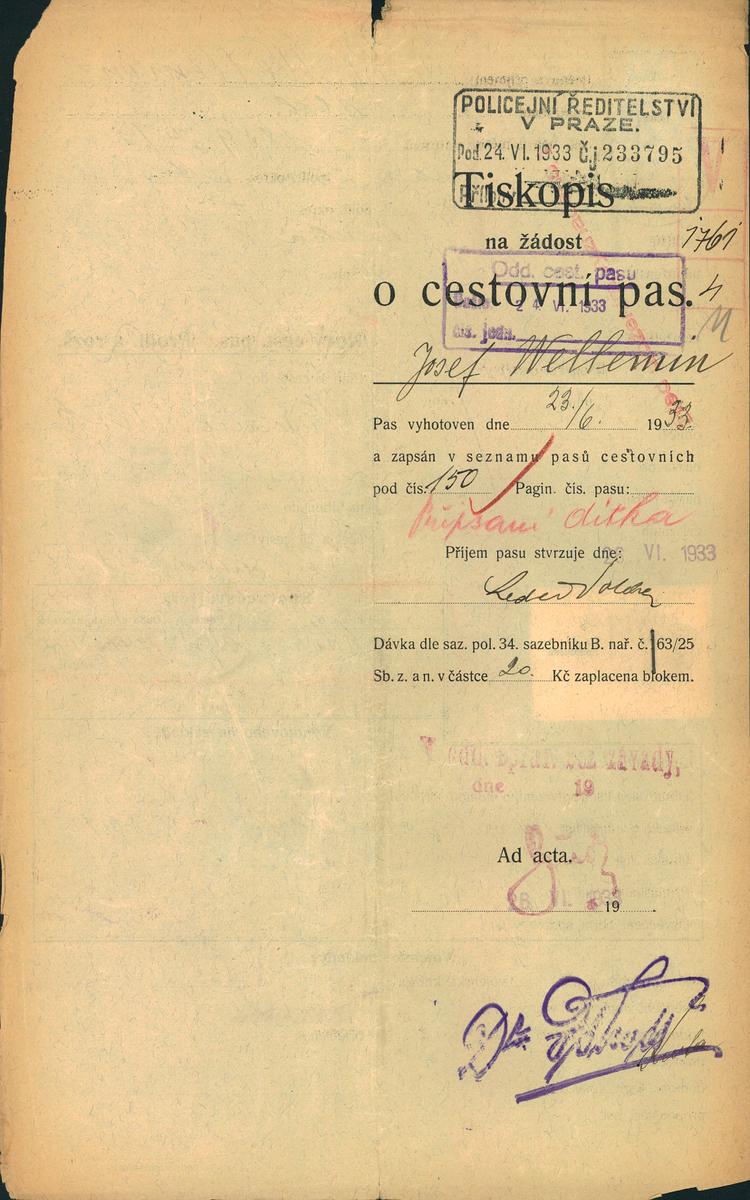 POLICEJNÍ ŘEDITELSTVÍ
V PRAZE.
Pod. 24. VI. 1933 Č.j 233795
Tiskopis
na žádost
1761
Odd. cest. pasů
o cestovní pas.
4
24 VI. 1933
čís. jedn.
Josef Wellemin
Pas vyhotoven dne 23./6. 1933.
a zapsán v seznamu pasů cestovních
pod čís. 150 Pagin. čís. pasu:
Připsání dítka
Příjem pasu stvrzuje dne: VI. 1933
Dávka dle saz. pol. 34. sazebníku B. nař. č. 163/25
Sb. z. a n. v částce 20. Kč zaplacena blokem.
V odd. závady,
dne 19
Ad acta.
26 VI. 1933
19
Dr.